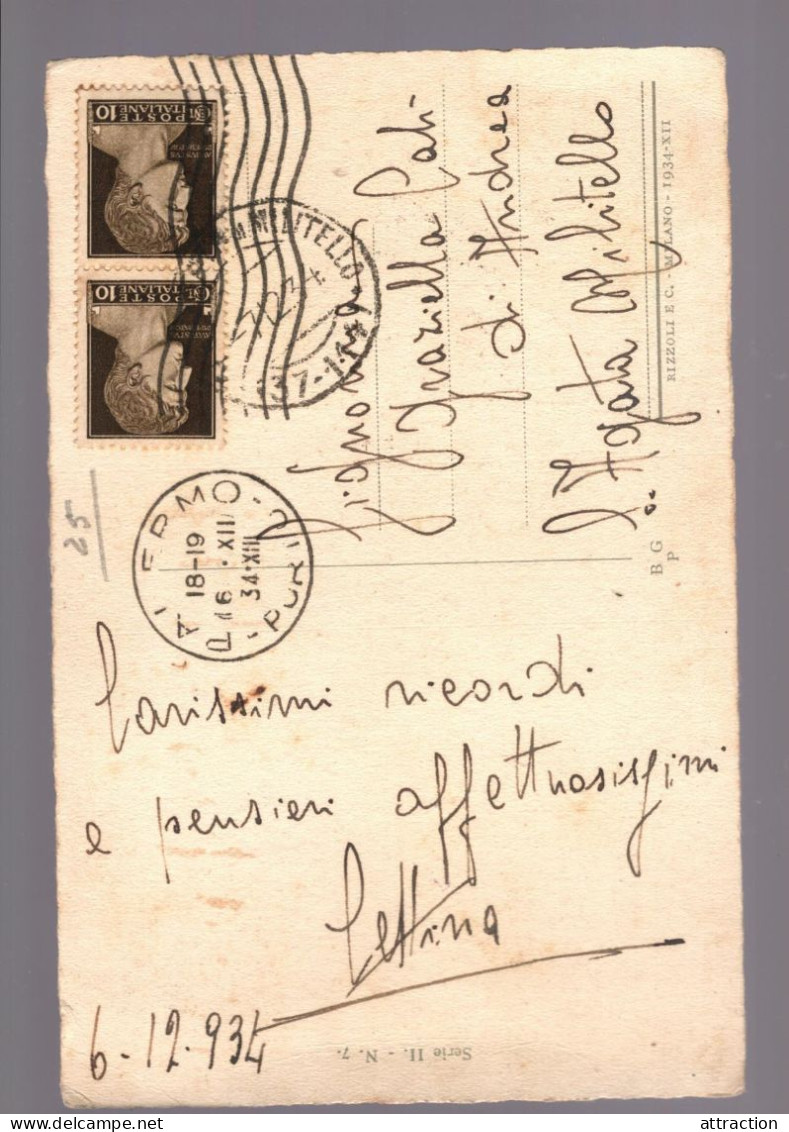 Carissimi ricordi
e pensieri affettuosissimi
Lettina
6-12.934
Signorina
Graziella Cali-
di Andrea
S. Agata Militello
25
POSTE
ITALIANE
CENT 10
POSTE
ITALIANE
CENT 10
MILITELLO
PALERMO
18-19
16 · XII
34·XIII
RIZZOLI E C. - MILANO - 1934-XII
B G
P
Serie II. - N. 7.
attraction